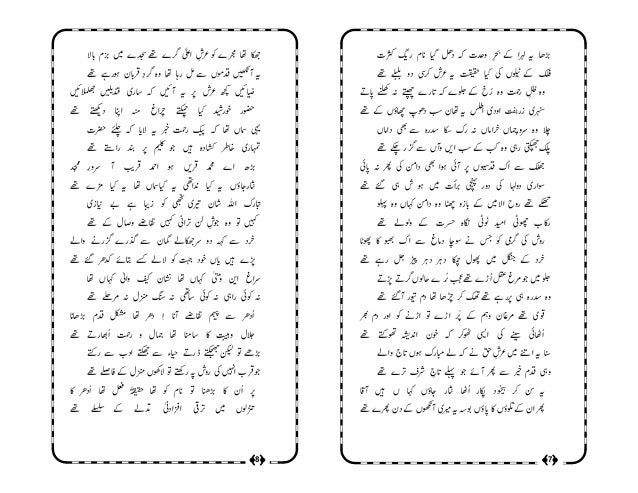 بڑھا یہ لہرا کے بحرِ وحدت کہ دھل گیا نام ریگِ کثرت
فلک کے ٹیلوں کی کیا حقیقت یہ عرش کرسی دو بلبلے تھے
وہ ظلِ رحمت وہ رخ کے جلوے کہ تارے چھپتے نہ کھلنے پاتے
سنہری زربفت اودی اطلس یہ تھان سب دھوپ چھاؤں کے تھے
چلا وہ سروِ چماں خراماں نہ رک سکا سدرہ سے بھی داماں
پلک جھپکتی رہی وہ کب کے سب ایں و آں سے گزر چکے تھے
جھلک سے اک قدسیوں پر آئی ہوا بھی دامن کی پھر نہ پائی
سواری دولہا کی دور پہنچی برأت میں ہوش ہی گئے تھے
تھکے تھے روح الامیں کے بازو چھٹا وہ دامن کہاں وہ پہلو
رکاب چھوٹی امید ٹوٹی نگاہ حسرت کے ولولے تھے
روش کی گرمی کو جس نے سوچا دماغ سے اک بھبوکا پھوٹا
خرد کے جنگل میں پھول چمکا دہر دہر پیڑ جل رہے تھے
جلو میں جو مرغِ عقل اُڑے تھے عجب بُرے حالوں گرتے پڑتے
وہ سدرہ ہی پر رہے تھے تھک کر چڑھا تھا دم تیور آگئے تھے
قوی تھے مرغانِ وہم کے پَر اُڑے تو اڑنے کو اور دم بھر
اُٹھائی سینے کی ایسی ٹھوکر کہ خون اندیشہ تھوکتے تھے
سنا یہ اتنے میں عرشِ حق نے کہ لے مبارک ہوں تاج والے
وہی قدم خیر سے پھر آئے جو پہلے تاج شرف ترے تھے
یہ سن کر بیخود پکار اُٹھا نثار جاؤں کہاں ہیں آقا
پھر ان کے تلوؤں کا پاؤں بوسہ یہ میری آنکھوں کے دن پھرے تھے
7
جھکا تھا مجرے کو عرشِ اعلیٰ گرے تھے سجدے میں بزم بالا
یہ آنکھیں قدموں سے مل رہا تھا وہ گرد قربان ہورہے تھے
ضیائیں کچھ عرش پر یہ آئیں کہ ساری قندیلیں جھلملائیں
حضور خورشید کیا چمکتے چراغ منہ اپنا دیکھتے تھے
یہی سماں تھا کہ پیکِ رحمت خبر یہ لایا کہ چلئے حضرت
تمہاری خاطر کشادہ ہیں جو کلیم پر بند راستے تھے
بڑھ اے محمد قریں ہو احمد قریب آ سرور ممجد
نثار جاؤں یہ کیا ندا تھی یہ کیا سماں تھا یہ کیا مزے تھے
تبارک اللہ شان تیری تجھی کو زیبا ہے بے نیازی
کہیں تو وہ جوشِ لن ترانی کہیں تقاضے وصال کے تھے
خرد سے کہہ دو سرجھکالے گمان سے گذرے گزرنے والے
پڑے ہیں یاں خود جہت کو لالے کسے بتائے کدھر گئے تھے
سراغ این ومتیٰ کہاں تھا نشان کیف والیٰ کہاں تھا
نہ کوئی راہی نہ کوئی ساتھی نہ سنگِ منزل نہ مرحلے تھے
اُدھر سے پیہم تقاضے آنا اِدھر تھا مشکل قدم بڑھانا
جلال وہیبت کا سامنا تھا جمال و رحمت اُبھارتے تھے
بڑھے تو لیکن جھجکتے ڈرتے حیاء سے جھکتے ادب سے رکتے
جو قرب انہیں کی روش پہ رکھتے تو لاکھوں منزل کے فاصلے تھے
پر اُن کا بڑھنا تو نام کو تھا حقیقۃً فعل تھا اُدھر کا
تنزلوں میں ترقی افزادنیٰ تدلے کے سلسلے تھے
8